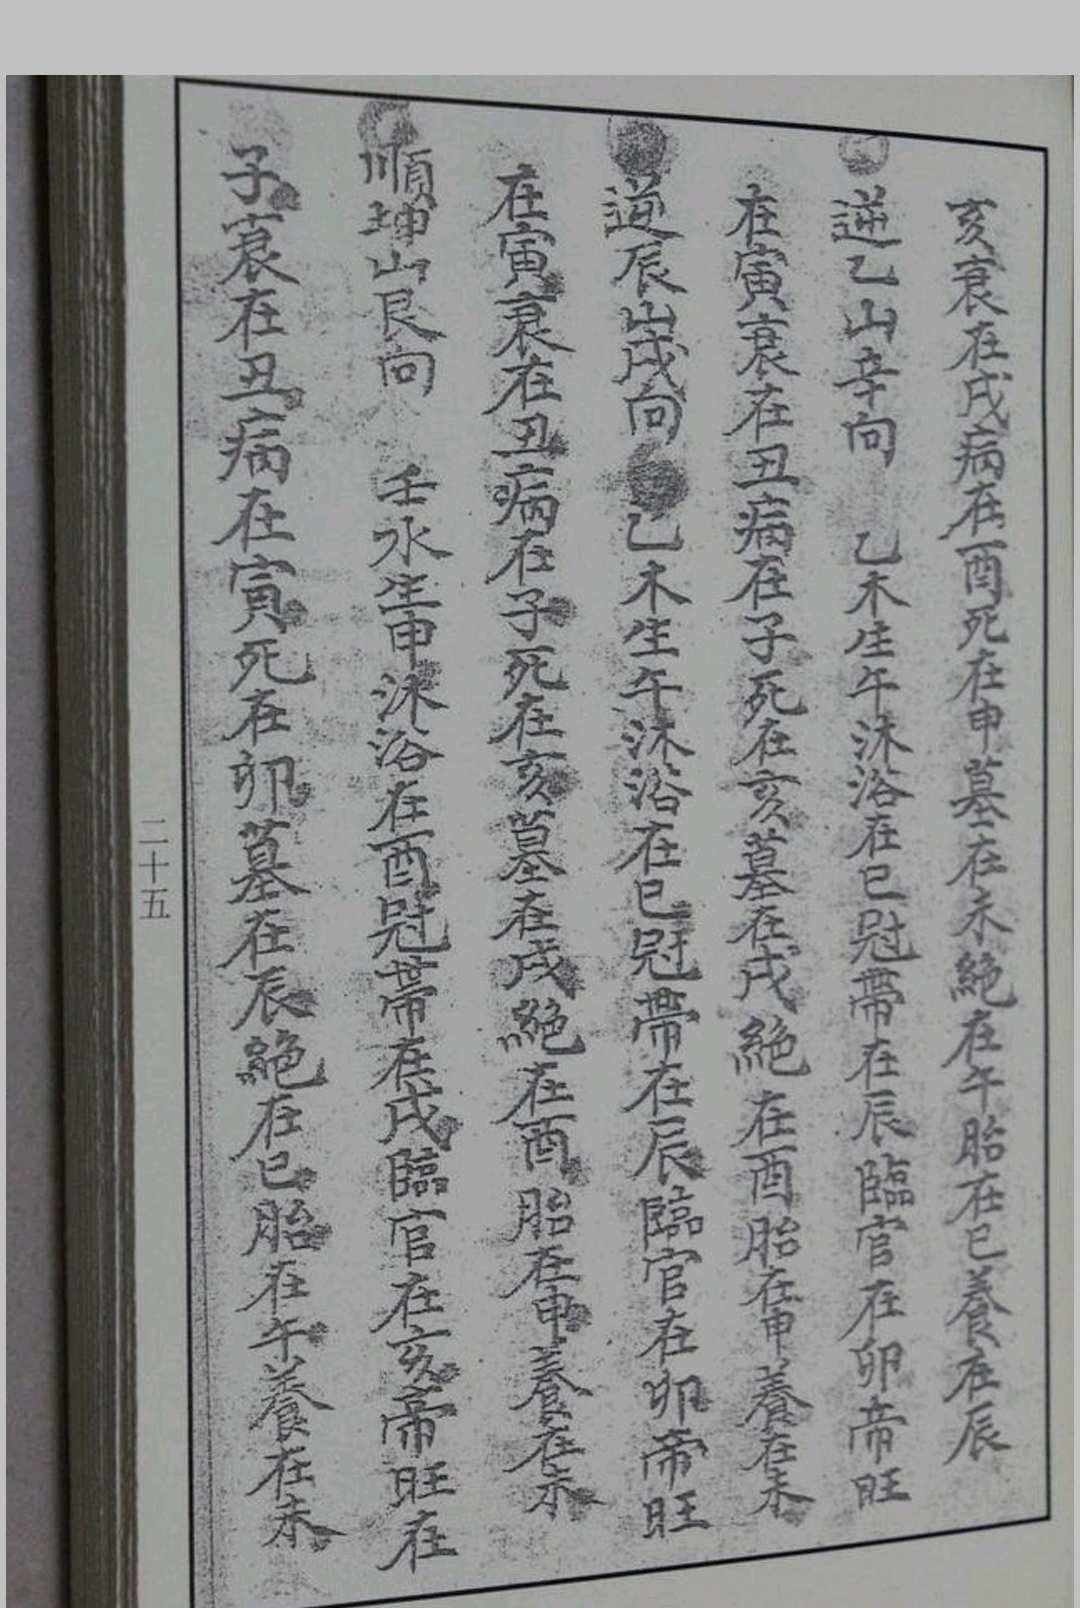 亥衰在戌病在酉死在申墓在未絕在午胎在巳養在辰
逆乙山辛向 乙木生午沐浴在巳冠帶在辰臨官在卯帝旺
在寅衰在丑病在子死在亥墓在戌絕在酉胎在申養在未
逆辰山戌向 乙木生午沐浴在巳冠帶在辰臨官在卯帝旺
在寅衰在丑病在子死在亥墓在戌絕在酉胎在申養在未
順坤山艮向 壬水生申沐浴在酉冠帶在戌臨官在亥帝旺在
子衰在丑病在寅死在卯墓在辰絕在巳胎在午養在未
二十五